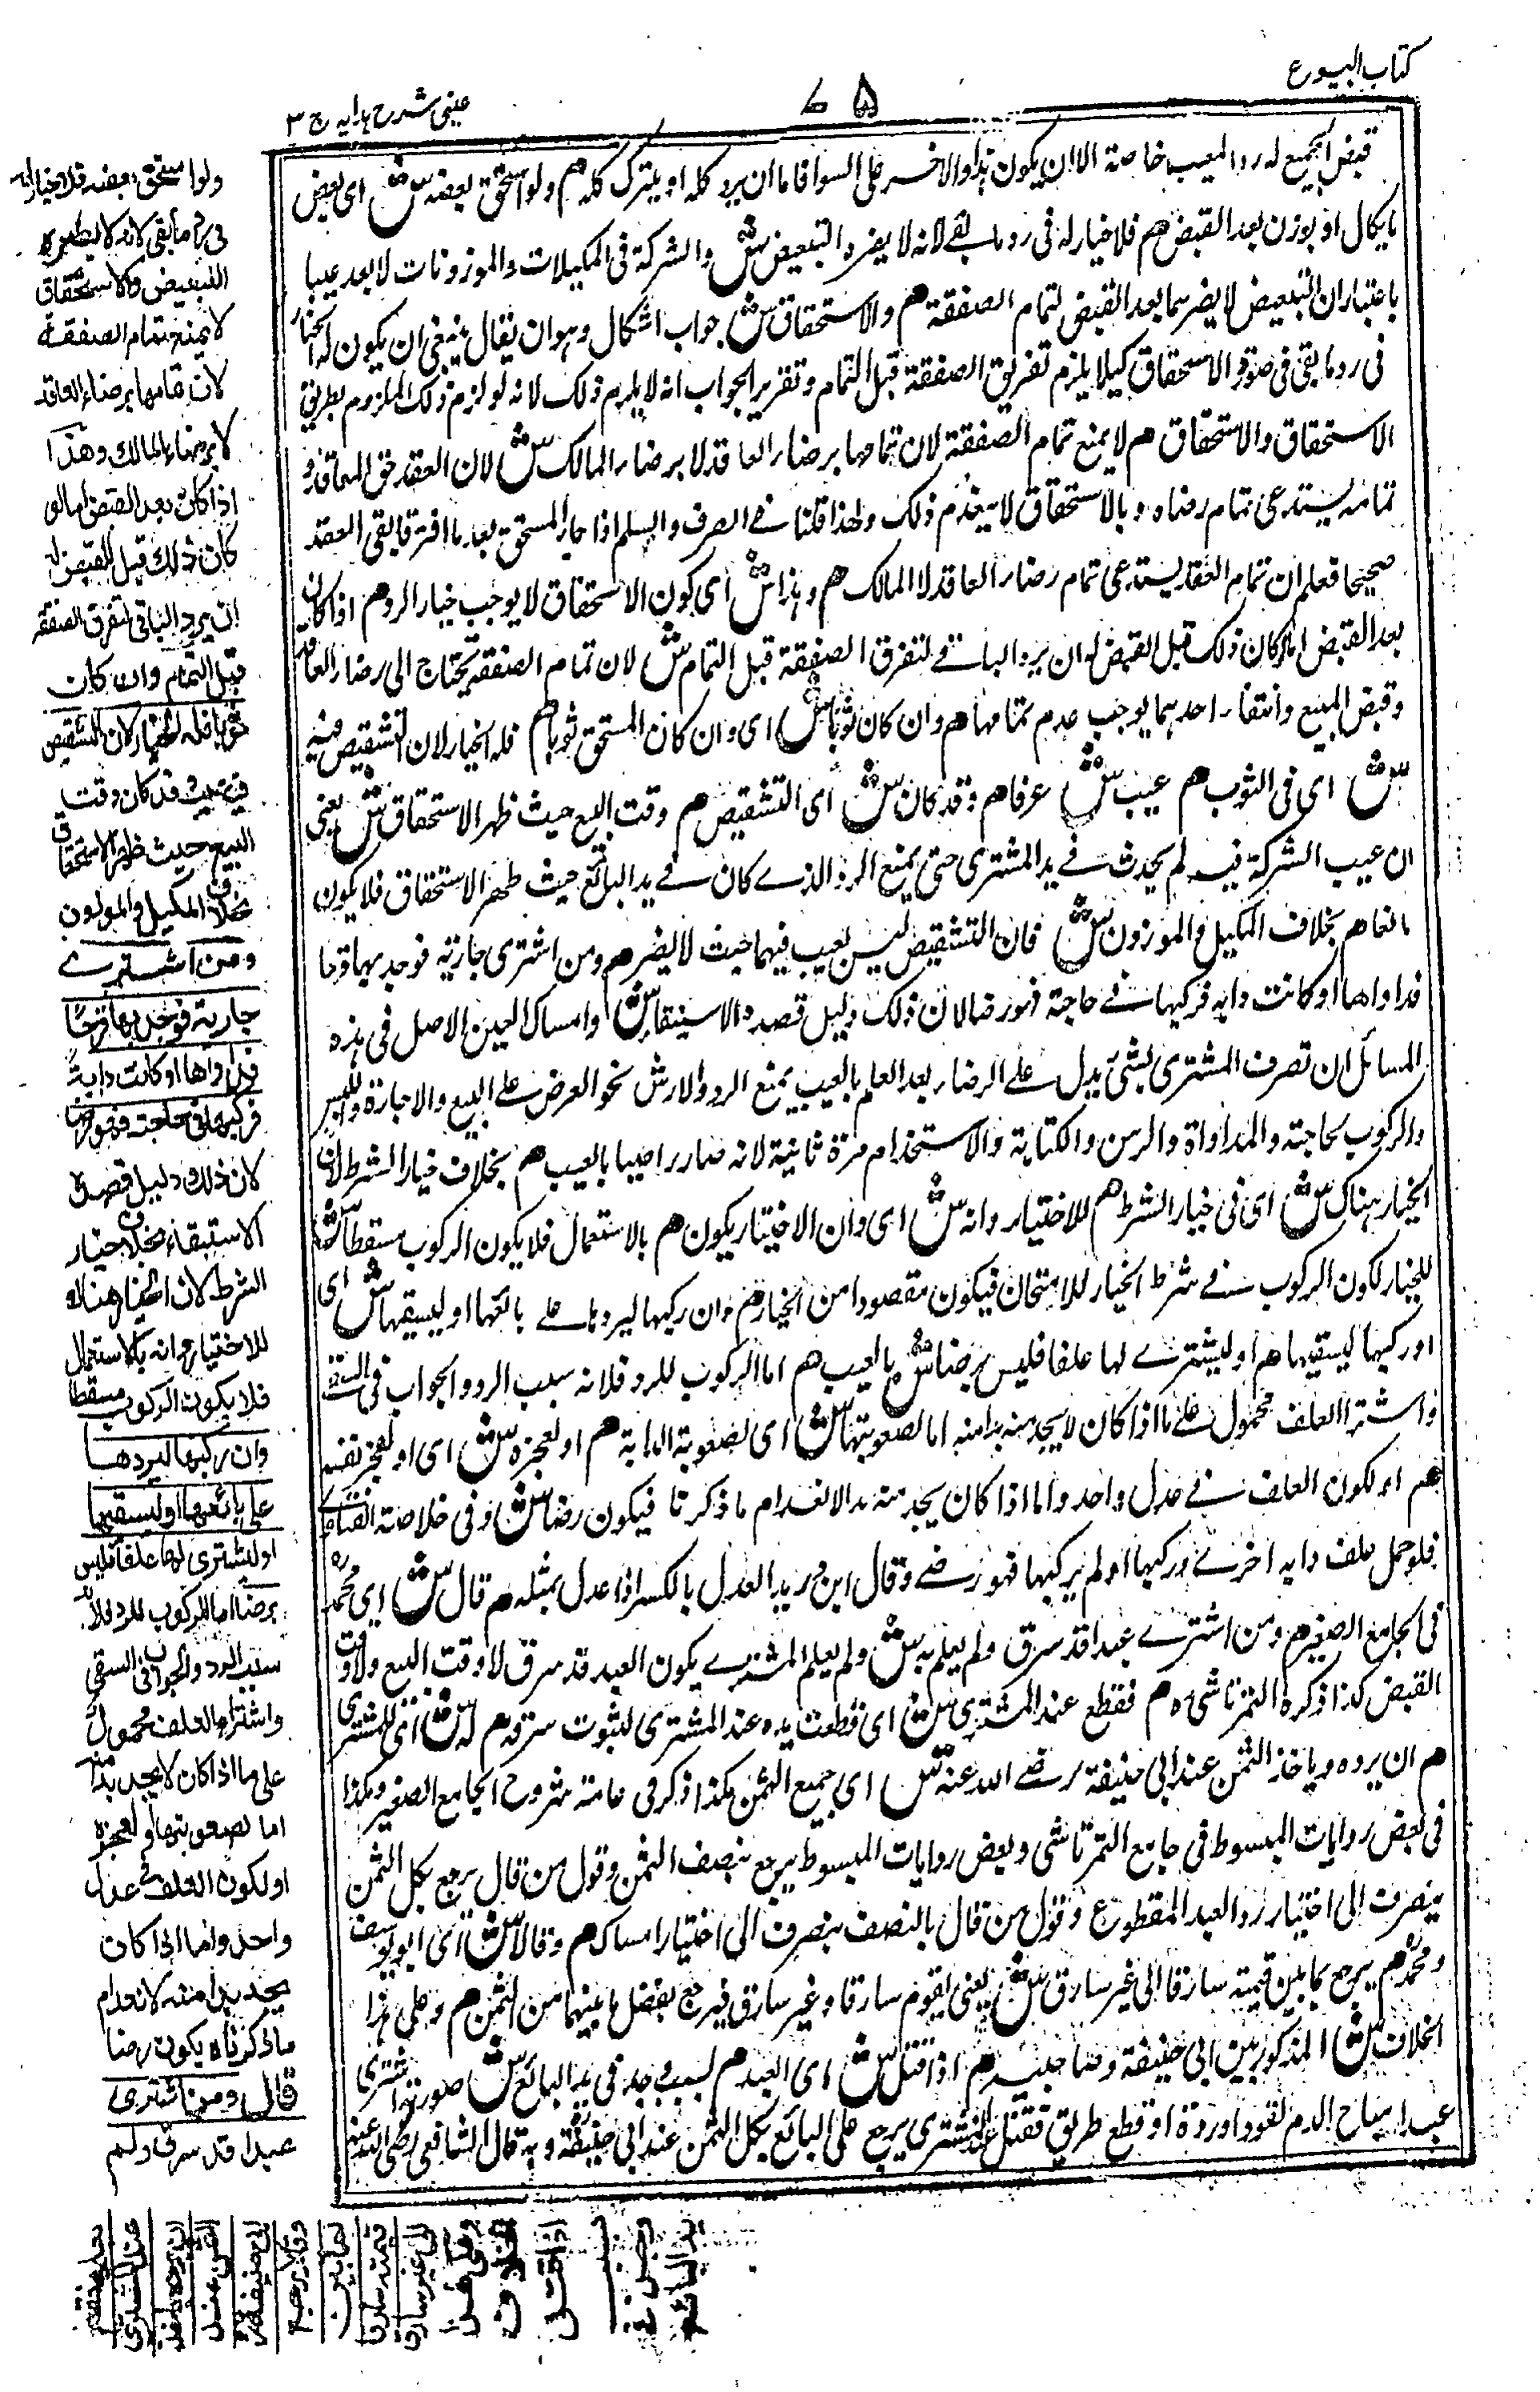 كتاب البيوع
٧٥
عينى شرح هدايه ج ٣
قبض الجميع له رد المعيب خاصة الا ان يكون هذا والاخر على السواء فاما ان يرد كله او يترك كله هم ولو استحق بعضه ش اى بعض
ما يكال او يوزن بعد القبض هم فلا خيار له فى رد ما بقى لانه لا يضره التبعيض ش والشركة فى المكيلات والموزونات لا يعد عيبا
باعتبار ان التبعيض لا يضرهما بعد القبض لتمام الصفقة هم والاستحقاق ش جواب اشكال وهو ان يقال ينبغى ان يكون له الخيار
فى رد ما بقى فى صورة الاستحقاق كيلا يلزم تفريق الصفقة قبل التمام وتقرير الجواب انه لا يلزم ذلك لانه لو لزم ذلك الملزوم بطريق
الاستحقاق والاستحقاق هم لا يمنع تمام الصفقة لان تمامها برضاء العاقد لا برضاء المالك ش لان العقد حق العاقد و
تمامه يستدعى تمام رضاه وبالاستحقاق لا ينعدم ذلك ولهذا قلنا فى الصرف والسلم اذا جاز المستحق بعد ما افترقا بقى العقد
صحيحا فعلم ان تمام العقد يستدعى تمام رضاء العاقد لا المالك هم وهذا ش اى كون الاستحقاق لا يوجب خيار الرد هم اذا كان
بعد القبض اما لو كان ذلك قبل القبض له ان يرد الباقى لتفرق الصفقة قبل التمام ش لان تمام الصفقة يحتاج الى رضاء العاقد
وقبض المبيع وانتفاء احدهما يوجب عدم تمامها هم وان كان ثوبا ش اى وان كان المستحق ثوبا هم فله الخيار لان التشقيص فيه
ش اى فى الثوب هم عيب ش عرفا هم وقد كان ش اى التشقيص هم وقت البيع حيث ظهر الاستحقاق ش يعنى
ان عيب الشركة فيه لم يحدث فى يد المشترى حتى يمنع الرد الذى كان فى يد البائع حيث ظهر الاستحقاق فلا يكون
مانعا هم بخلاف المكيل والموزون ش فان التشقيص ليس بعيب فيهما حيث لا يضر هم ومن اشترى جارية فوجد بها قرحا
فداواها او كانت دابه فركبها فى حاجته فهو رضا لان ذلك دليل قصده الاستبقاء ش وامساك العين الاصل فى هذه
المسائل ان تصرف المشترى بشئ يدل على الرضاء بعد العلم بالعيب يمنع الرد والارش نحو العرض على البيع والاجارة واللبس
والركوب لحاجته والمداواة والرهن والكتابة والاستخدام مرة ثانية لانه صار راضيا بالعيب هم بخلاف خيار الشرط لان
الخيار هناك ش اى فى خيار الشرط هم للاختيار وانه ش اى وان الاختيار يكون هم بالاستعمال فلا يكون الركوب مسقطا ش
للخيار لكون الركوب فى شرط الخيار للامتحان فيكون مقصودا من الخيار هم وان ركبها ليردها على بائعها او ليسقيها ش اى
او ركبها ليسقيها هم او ليشترى لها علفا فليس برضا ش بالعيب هم اما الركوب للرد فلانه سبب الرد والجواب فى السقى
واشتراء العلف محمول على ما اذا كان لا يجد منه بدا منه اما لصعوبتها ش اى لصعوبة الدابة هم او لعجزه ش اى او لعجز نفسه
هم او لكون العلف فى عدل واحد واما اذا كان يجد منه بدا لانعدام ما ذكرنا فيكون رضا ش وفى خلاصة الفتاوى
فلو حمل علف دابه اخرى وركبها او لم يركبها فهو رضى وقال ابن دريد العدل بالكسر اذا عدل بمثله هم قال ش اى محمد
فى الجامع الصغير هم ومن اشترى عبدا قد سرق ولم يعلم به ش ولم يعلم المشترى بكون العبد قد سرق لا وقت البيع ولا وقت
القبض كذا ذكره التمرتاشى هم فقطع عند المشترى ش اى قطعت يده عند المشترى لثبوت سرقه هم له ش اى للمشترى
هم ان يرده وياخذ الثمن عند ابى حنيفة رضى الله عنه ش اى جميع الثمن هكذا ذكر فى عامة شروح الجامع الصغير وهكذا
فى بعض روايات المبسوط فى جامع التمرتاشى وبعض روايات المبسوط يرجع بنصف الثمن وقول من قال يرجع بكل الثمن
ينصرف الى اختيار رد العبد المقطوع وقول من قال بالنصف ينصرف الى اختيار امساكه هم وقالا ش اى ابو يوسف
ومحمد هم يرجع بما بين قيمته سارقا الى غير سارق ش يعنى يقوم سارقا وغير سارق فيرجع بفضل ما بينهما من الثمن هم وعلى هذا
الخلاف ش المذكور بين ابى حنيفة وصاحبيه هم اذا قتل ش اى العبد هم بسبب وجد فى يد البائع ش صورته اشترى
عبدا مباح الدم لقود او ردة او قطع طريق فقتل عند المشترى يرجع على البائع بكل الثمن عند ابى حنيفة وبه قال الشافعى رضى الله عنه
ولو استحق بعضه فلا خيار له
فى رد ما بقى لانه لا يضره
التبعيض والاستحقاق
لا يمنع تمام الصفقة
لان تمامها برضاء العاقد
لا برضاء المالك وهذا
اذا كان بعد القبض اما لو
كان ذلك قبل القبض له
ان يرد الباقى لتفرق الصفقة
قبل التمام وان كان
ثوبا فله الخيار لان التشقيص
فيه عيب وقد كان وقت
البيع حيث ظهر الاستحقاق
بخلاف المكيل والموزون
ومن اشترى
جارية فوجد بها قرحا
فداواها او كانت دابة
فركبها فى حاجته فهو رضا
لان ذلك دليل قصده
الاستبقاء بخلاف خيار
الشرط لان الخيار هناك
للاختيار وانه بالاستعمال
فلا يكون الركوب مسقطا
وان ركبها ليردها
على بائعها او ليسقيها
او ليشترى لها علفا فليس
برضا اما الركوب للرد فلانه
سبب الرد والجواب فى السقى
واشتراء العلف محمول
على ما اذا كان لا يجد بدا منه
اما لصعوبتها او لعجزه
او لكون العلف فى عدل
واحد واما اذا كان
يجد بدا منه لانعدام
ما ذكرناه يكون رضا
قال ومن اشترى
عبدا قد سرق ولم
يعلم به فقطع
عند المشترى
له ان يرده وياخذ
الثمن عند
ابى حنيفة
وقالا يرجع
بما بين
قيمته سارقا
الى غير سارق
وعلى هذا
الخلاف
اذا قتل
بسبب
وجد فى
يد البائع